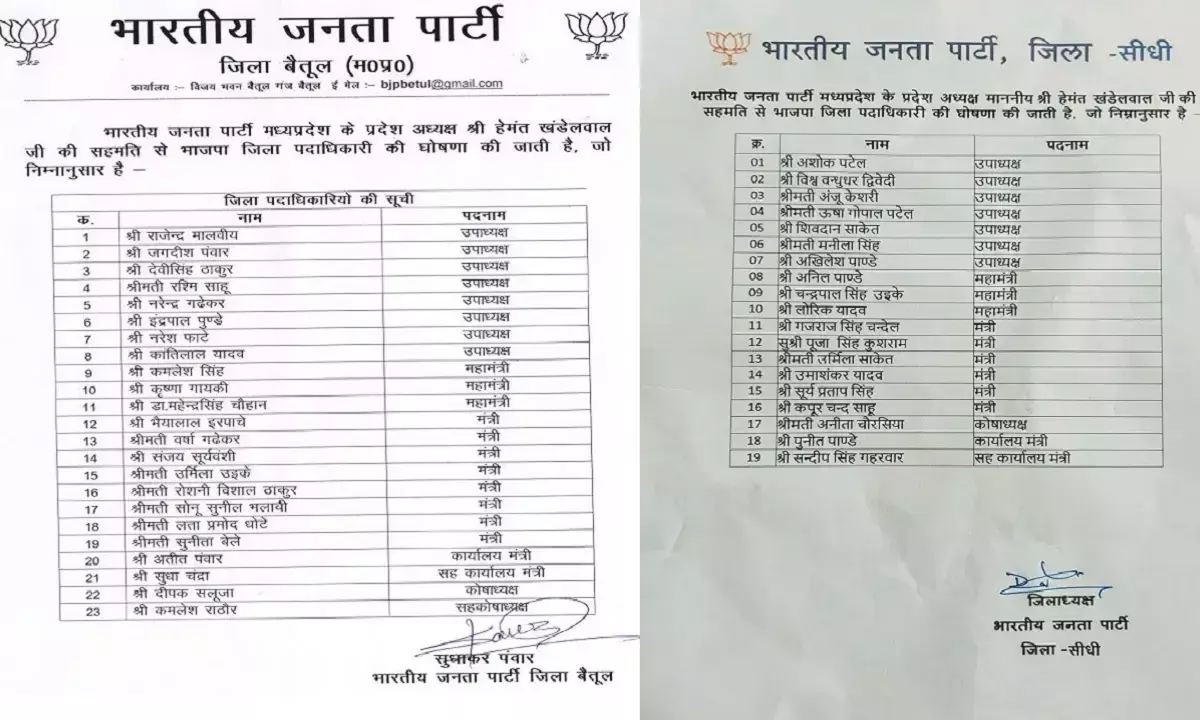 भारतीय जनता पार्टी
जिला बैतूल (म0प्र0)
कार्यालय :– विजय भवन बैतूल गंज बैतूल ई मेल :– bjpbetul@gmail.com
भारतीय जनता पार्टी मध्यप्रदेश के प्रदेश अध्यक्ष श्री हेमंत खंडेलवाल
जी की सहमति से भाजपा जिला पदाधिकारी की घोषणा की जाती है, जो
निम्नानुसार है –
जिला पदाधिकारियो की सूची
क. नाम पदनाम
1 श्री राजेन्द्र मालवीय उपाध्यक्ष
2 श्री जगदीश पंवार उपाध्यक्ष
3 श्री देवीसिंह ठाकुर उपाध्यक्ष
4 श्रीमती रश्मि साहू उपाध्यक्ष
5 श्री नरेन्द्र गढेकर उपाध्यक्ष
6 श्री इंद्रपाल पुण्डे उपाध्यक्ष
7 श्री नरेश फाटे उपाध्यक्ष
8 श्री कांतिलाल यादव उपाध्यक्ष
9 श्री कमलेश सिंह महामंत्री
10 श्री कृष्णा गायकी महामंत्री
11 श्री डा.महेन्द्रसिंह चौहान महामंत्री
12 श्री भैयालाल इरपाचे मंत्री
13 श्रीमती वर्षा गढेकर मंत्री
14 श्री संजय सूर्यवंशी मंत्री
15 श्रीमती उर्मिला उइके मंत्री
16 श्रीमती रोशनी विशाल ठाकुर मंत्री
17 श्रीमती सोनू सुनील भलावी मंत्री
18 श्रीमती लता प्रमोद धोटे मंत्री
19 श्रीमती सुनीता बेले मंत्री
20 श्री अतीत पंवार कार्यालय मंत्री
21 श्री सुधा चंद्रा सह कार्यालय मंत्री
22 श्री दीपक सलूजा कोषाध्यक्ष
23 श्री कमलेश राठौर सहकोषाध्यक्ष
सुधाकर पंवार
भारतीय जनता पार्टी जिला बैतूल
भारतीय जनता पार्टी, जिला -सीधी
भारतीय जनता पार्टी मध्यप्रदेश के प्रदेश अध्यक्ष माननीय श्री हेमंत खंडेलवाल जी की
सहमति से भाजपा जिला पदाधिकारी की घोषणा की जाती है, जो निम्नानुसार है –
क्र. नाम पदनाम
01 श्री अशोक पटेल उपाध्यक्ष
02 श्री विश्व वन्धुधर द्विवेदी उपाध्यक्ष
03 श्रीमती अंजू केशरी उपाध्यक्ष
04 श्रीमती ऊषा गोपाल पटेल उपाध्यक्ष
05 श्री शिवदान साकेत उपाध्यक्ष
06 श्रीमती मनीला सिंह उपाध्यक्ष
07 श्री अखिलेश पाण्डे उपाध्यक्ष
08 श्री अनिल पाण्डे महामंत्री
09 श्री चन्द्रपाल सिंह उइके महामंत्री
10 श्री लोरिक यादव महामंत्री
11 श्री गजराज सिंह चन्देल मंत्री
12 सुश्री पूजा सिंह कुशराम मंत्री
13 श्रीमती उर्मिला साकेत मंत्री
14 श्री उमाशंकर यादव मंत्री
15 श्री सूर्य प्रताप सिंह मंत्री
16 श्री कपूर चन्द साहू मंत्री
17 श्रीमती अनीता चौरसिया कोषाध्यक्ष
18 श्री पुनीत पाण्डे कार्यालय मंत्री
19 श्री सन्दीप सिंह गहरवार सह कार्यालय मंत्री
जिलाध्यक्ष
भारतीय जनता पार्टी
जिला -सीधी